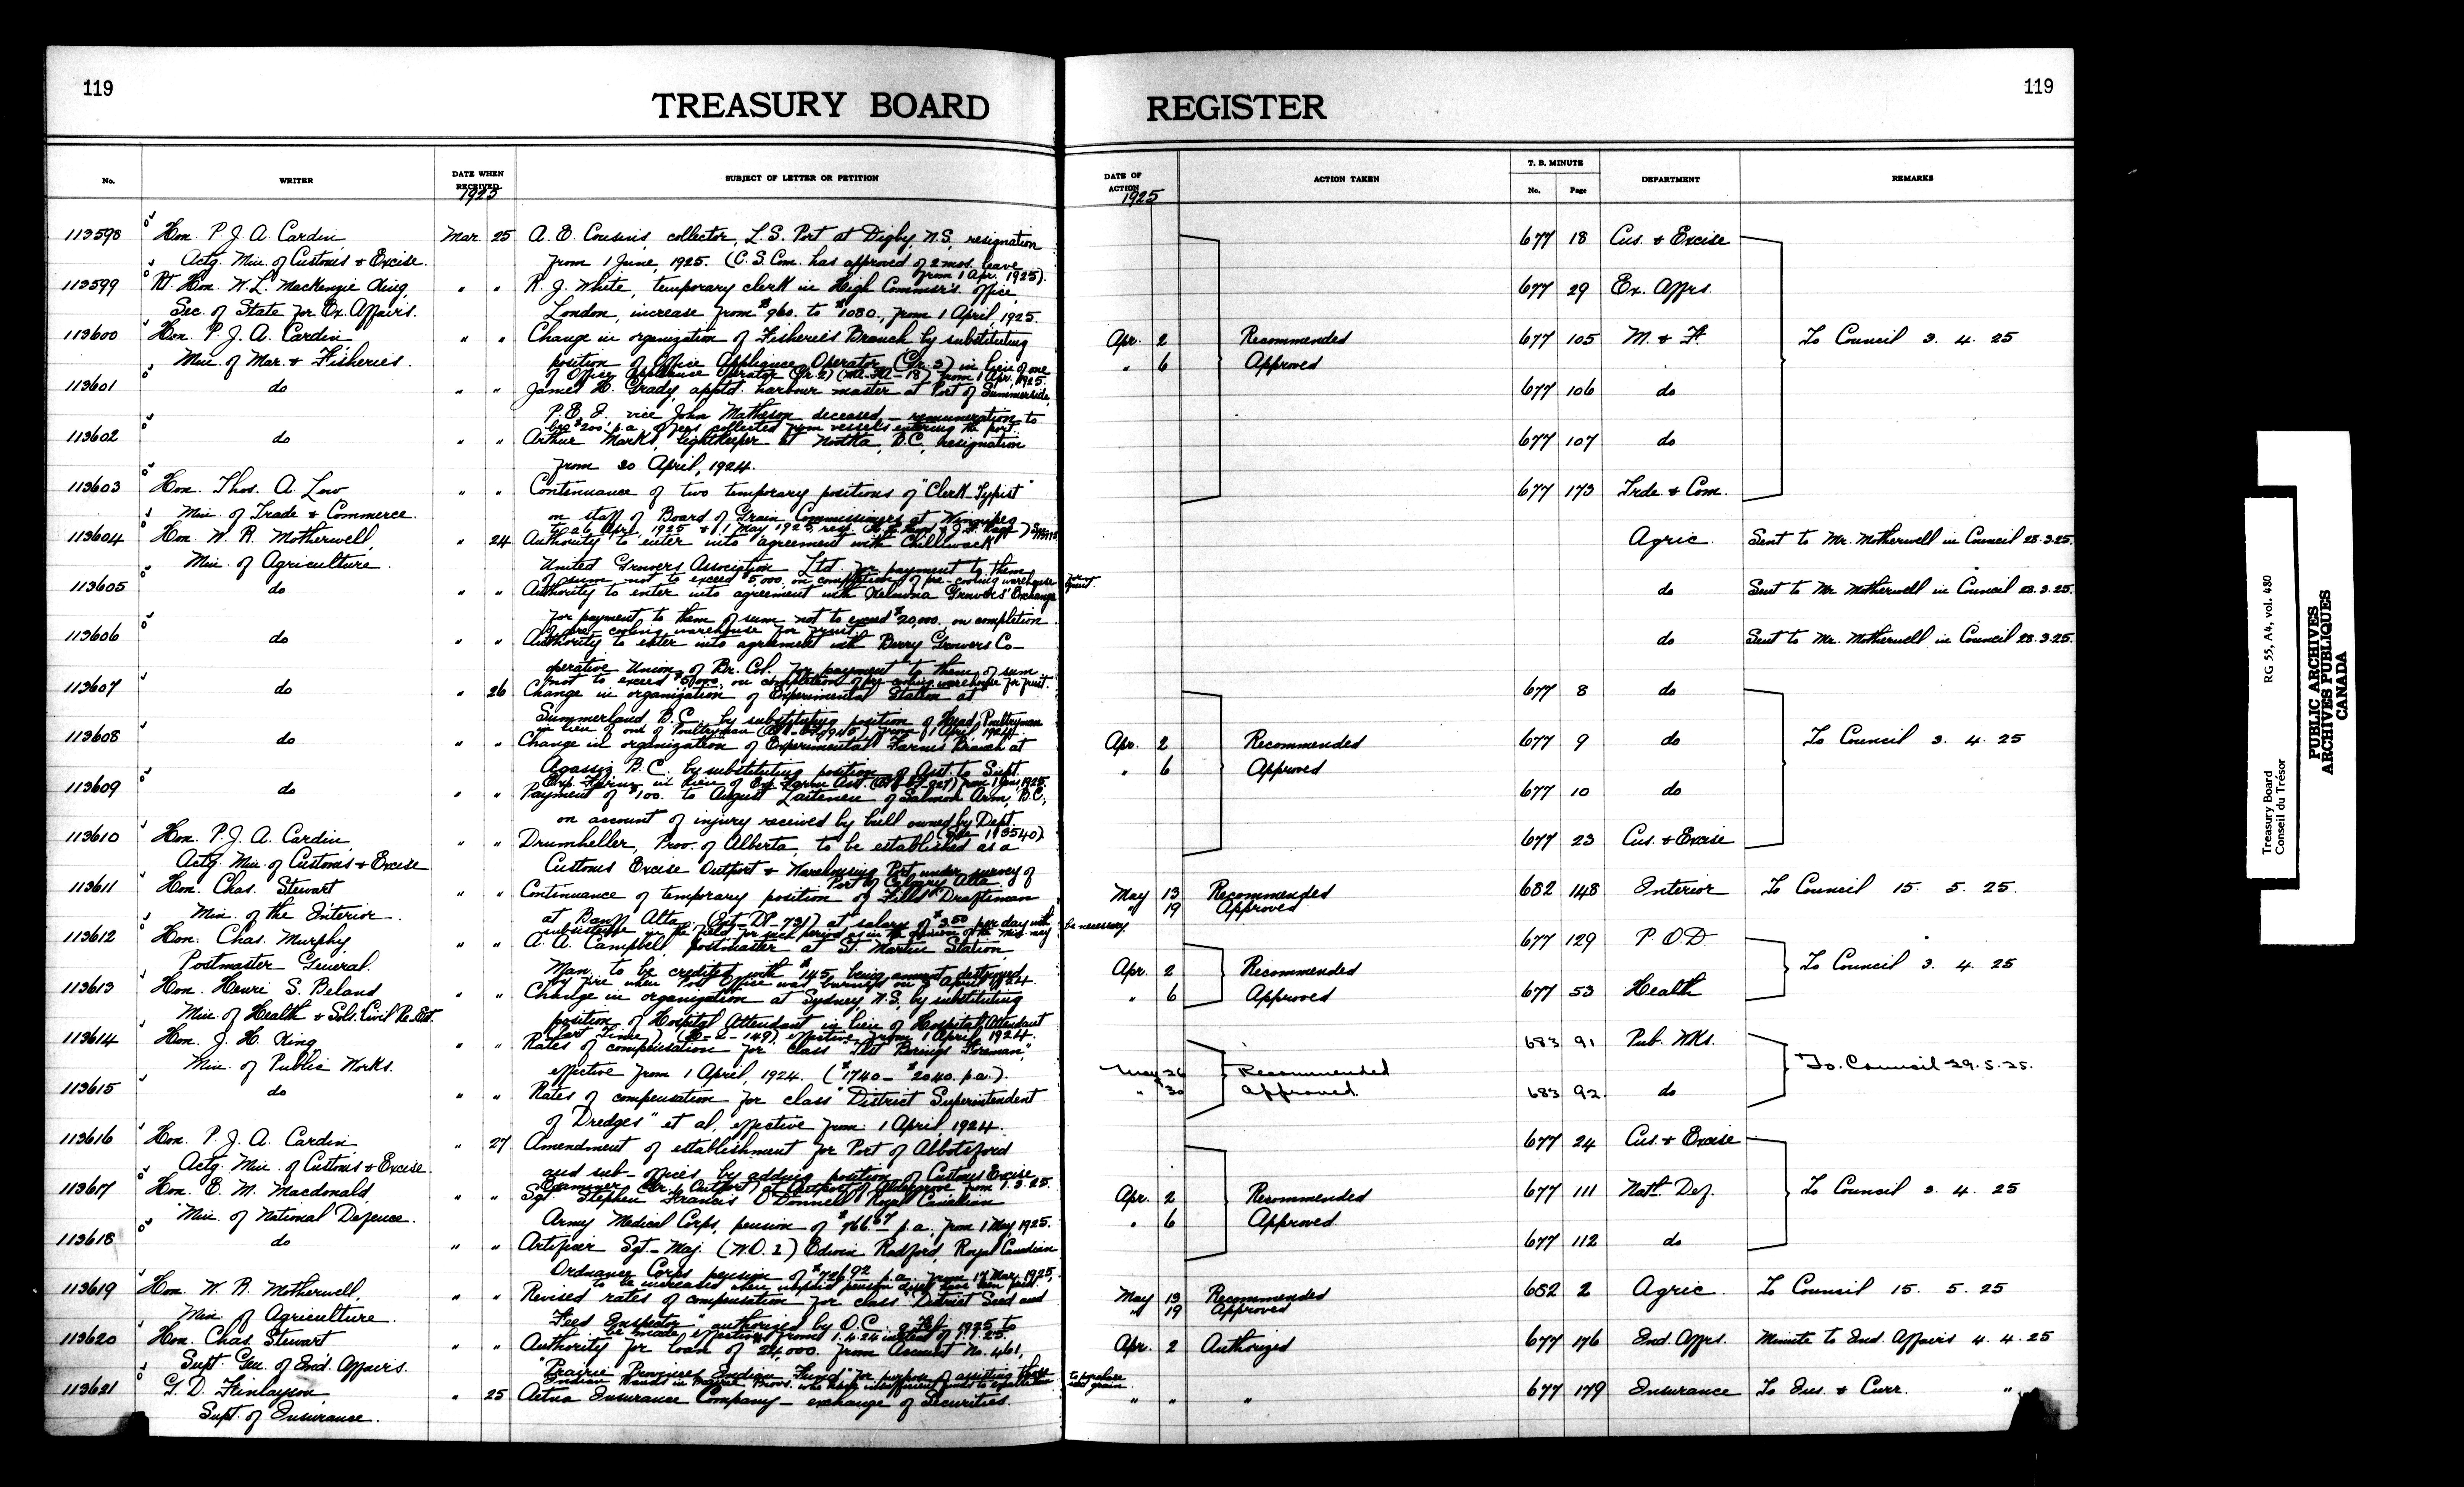 119
TREASURY BOARD
No.
WRITER
DATE WHEN RECEIVED
1925
SUBJECT OF LETTER OR PETITION
113598 Hon. P. J. A. Cardin, Mar. 25 A. E. Cousins, collector, L.S. Port at Digby, N.S., resignation
Actg. Min. of Customs & Excise. from 1 June, 1925. (C.S. Com. has approved of 2 mos. leave
from 1 Apr. 1925).
113599 Rt. Hon. W. L. Mackenzie King, " " R. J. White, temporary clerk in High Commr's. office,
Sec. of State for Ex. Affairs. London, increase from $960. to $1080., from 1 April, 1925.
113600 Hon. P. J. A. Cardin, " " Change in organization of Fisheries Branch by substituting
Min. of Mar. & Fisheries. position of Office Appliance Operator (Gr. 3) in lieu of one
of Office Appliance Operator (Gr. 2) from 1 Apr. 1925.
113601 do " " James H. Grady, apptd. harbour master at Port of Summerside,
P.E.I. vice John Matheson deceased, — remuneration to
be $200. p.a. of fees collected from vessels entering the port.
113602 do " " Arthur Marks, lightkeeper at Nootka, B.C., resignation
from 30 April, 1924.
113603 Hon. Thos. A. Low " " Continuance of two temporary positions of "Clerk-Typist"
Min. of Trade & Commerce. on staff of Board of Grain Commissioners at Winnipeg
to 26 Apr. 1925 & 1 May 1925, resp.
113604 Hon. W. R. Motherwell, " 24 Authority to enter into agreement with Chilliwack
Min. of Agriculture. United Growers Association Ltd. for payment to them
of sum not to exceed $5,000. on completion of pre-cooling warehouse for fruit.
113605 do " " Authority to enter into agreement with Kelowna Growers' Exchange
for payment to them of sum not to exceed $20,000. on completion
of pre-cooling warehouse for fruit.
113606 do " " Authority to enter into agreement with Berry Growers Co-
operative Union of Br. Col. for payment to them of sum
not to exceed $5,000. on completion of pre-cooling warehouse for fruit.
113607 do " 26 Change in organization of Experimental Station at
Summerland B.C. by substituting position of Head Poultryman
in lieu of one of Poultryman from 1 April 1924.
113608 do " " Change in organization of Experimental Farms Branch at
Agassiz B.C. by substituting position of Asst. to Supt.
Exp. Farms in lieu of Exp. Farm Asst. from 1 Jan. 1925.
113609 do " " Payment of $100. to August Laitenen of Salmon Arm, B.C.,
on account of injury received by bull owned by Dept.
(See 113540)
113610 Hon. P. J. A. Cardin, " " Drumheller, Prov. of Alberta, to be established as a
Actg. Min. of Customs & Excise Customs Excise Outport & Warehousing Port under survey of
Port of Calgary Alta.
113611 Hon. Chas. Stewart " " Continuance of temporary position of "Field Draftsman
Min. of the Interior. at Banff Alta. (Int-DL-731) at salary of $3.50 per day with
subsistence in the field for such period as in the opinion of the Min. may be necessary.
113612 Hon. Chas. Murphy, " " A. A. Campbell, postmaster at St. Martin Station,
Postmaster General. Man. to be credited with $145. being amount destroyed
by fire when Post Office was burned on 3 April 1924.
113613 Hon. Henri S. Beland " " Change in organization at Sydney N.S. by substituting
Min. of Health & Sols. Civil Re-Est. position of Hospital Attendant in lieu of Hospital Attendant
Part Time, (H-2-149) effective from 1 April 1924.
113614 Hon. J. H. King " " Rates of compensation for class "Test Borings Foreman,"
Min. of Public Works. effective from 1 April, 1924. ($1740 — $2040. p.a.).
113615 do " " Rates of compensation for class "District Superintendent
of Dredges" et al, effective from 1 April 1924.
113616 Hon. P. J. A. Cardin, " 27 Amendment of establishment for Port of Abbotsford
Actg. Min. of Customs & Excise. and sub-offices by adding position of Customs Excise
Examiner (Gr. 1, Outport) at Outport of Aldergrove from 1.3.25.
113617 Hon. E. M. Macdonald, " " Sgt. Stephen Francis O'Donnell, Royal Canadian
Min. of National Defence. Army Medical Corps, pension of $766.67 p.a. from 1 May, 1925.
113618 do " " Artificer Sgt.-Maj. (W.O. 2) Edwin Radford, Royal Canadian
Ordnance Corps pension of $726.92 p.a. from 17 Mar. 1925,
to be increased when unpaid pension dues have been paid.
113619 Hon. W. R. Motherwell, " " Revised rates of compensation for class "District Seed and
Min. of Agriculture. Feed Inspector" authorized by O.C. 9 Feb. 1925 to
be made effective from 1.4.24 instead of 1.1.25.
113620 Hon. Chas. Stewart " " Authority for loan of $24,000. from Account No. 461,
Supt. Gen. of Ind. Affairs. "Prairie Provinces Indian Fund" for purpose of assisting those
Indian Bands in Prairie Provs. who have insufficient funds to purchase seed grain.
113621 G. D. Finlayson " 25 Aetna Insurance Company — exchange of Securities.
Supt. of Insurance.
119
REGISTER
DATE OF ACTION
1925
ACTION TAKEN
T. B. MINUTE
No. Page
DEPARTMENT
REMARKS
677 18 Cus. & Excise
677 29 Ex. Affrs.
Apr. 2 Recommended 677 105 M. & F. To Council 3. 4. 25
" 6 Approved
677 106 do
677 107 do
677 173 Trde. & Com.
Agric. Sent to Mr. Motherwell in Council 28.3.25.
do Sent to Mr. Motherwell in Council 28.3.25.
do Sent to Mr. Motherwell in Council 28.3.25.
677 8 do
Apr. 2 Recommended 677 9 do To Council 3. 4. 25
" 6 Approved
677 10 do
677 23 Cus. & Excise
May 13 Recommended 682 148 Interior To Council 15. 5. 25.
" 19 Approved
677 129 P.O.D.
Apr. 2 Recommended To Council 3. 4. 25
" 6 Approved 677 53 Health
683 91 Pub. Wks.
May 26 Recommended To Council 29.5.25.
" 30 Approved 683 92. do
677 24 Cus. & Excise
Apr. 2 Recommended 677 111 Natl. Def. To Council 3. 4. 25
" 6 Approved
677 112 do
May 13 Recommended 682 2 Agric. To Council 15. 5. 25
" 19 Approved
Apr. 2 Authorized 677 176 Ind. Affrs. Minute to Ind. Affairs 4. 4. 25
" " " 677 179 Insurance To Ins. & Curr. "
Treasury Board RG 55, A4, vol. 480
Conseil du Trésor
PUBLIC ARCHIVES
ARCHIVES PUBLIQUES
CANADA